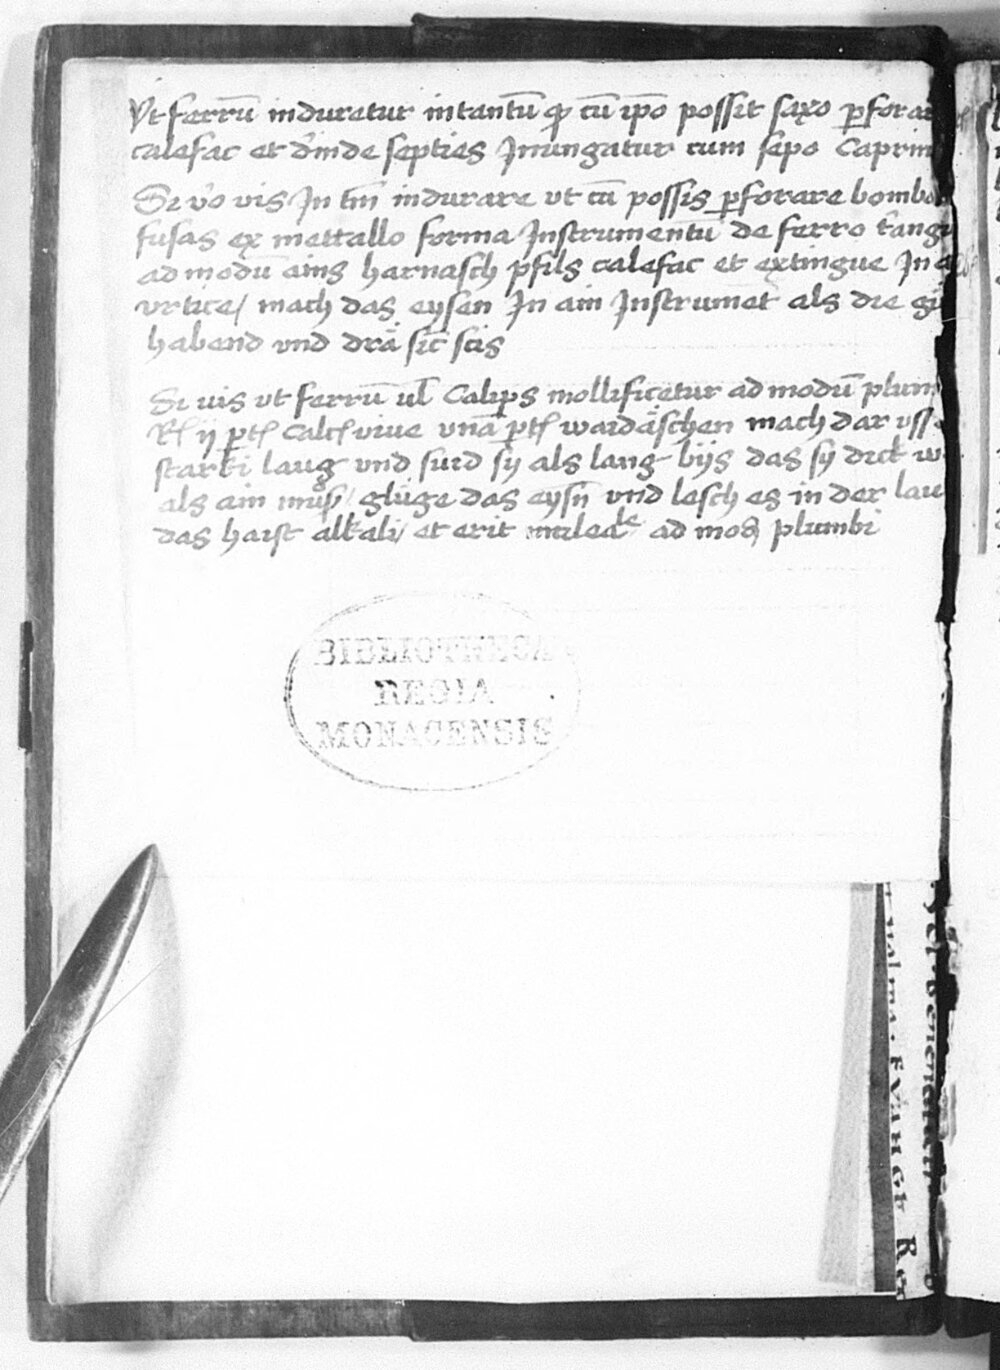 Vt ferrū induretur in tantū ꝙ cū ip̄o possit saxo ꝑforar
calefac et d̄inde septies Inungatur cum sepo Caprin
Si v̄o vis In tm̄ indurare vt cū possis ꝑforare bombar
fusas ex mettallo forma Instrumentū de ferro
ad modū ains harnasch calefac et extingue In
vrtice / mach das eysen In ain Instrumēt als die
habend vnd
Si vis vt ferrū ul̄ Calips mollificetur ad modū plum
ij calc viue vnā waidäschen mach dar vss
starki laug vnd sud sy als lang bijs das sy dick w
als ain müs / glüge das eysn̄ vnd lesch es in der lau
das haist alkali / et erit ad mod plumbi
BIBLIOTHECA
REGIA
MONACENSIS